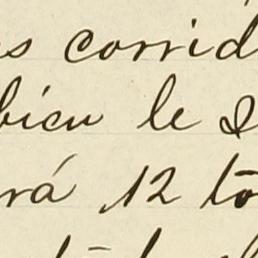 s corrid
bien le
rá 12 to